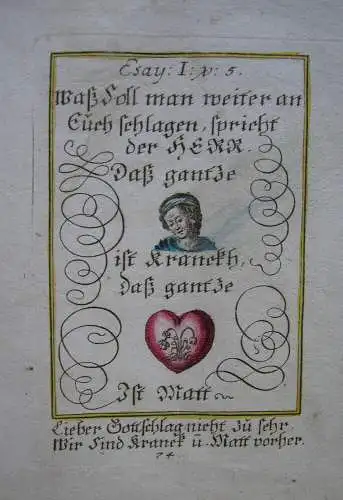 Esay: I: v: 5.
Waß Soll man weiter an
Eüch schlagen, spricht
der HERR.
Daß gantze
ist Kranckh,
daß gantze
Ist Matt
Lieber Gott schlag nicht zu sehr.
Wir Sind Kranck ū. Matt vorher.
74